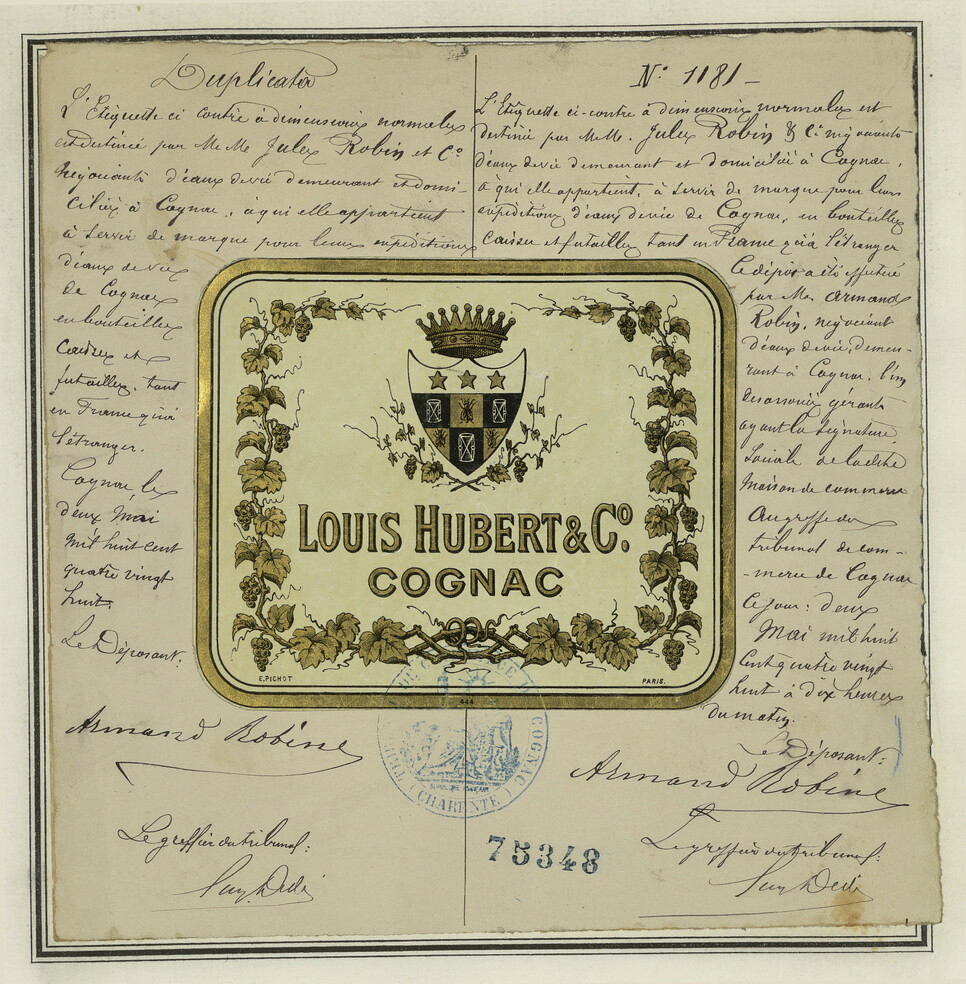 Duplicata
L'Etiquette ci contre à dimensions normales
est destinée par MM. Jules Robin et Co
Négociants d'eaux de vie demeurant et domi-
ciliés à Cognac, à qui elle appartient
à servir de marque pour leurs expéditions
d'eaux de vie
de Cognac
en bouteilles
Caisses et
futailles, tant
en France qu'à
l'étranger.
Cognac, le
deux Mai
mil huit cent
quatre vingt
huit.
Le Déposant:
Armand Robin
Le greffier du tribunal:
No 1181 -
L'Etiquette ci-contre à dimensions normales est
destinée par MM. Jules Robin & Cie négociants
d'eaux de vie demeurant et domiciliés à Cognac,
à qui elle appartient, à servir de marque pour leurs
expéditions d'eaux de vie de Cognac, en bouteilles
Caisses et futailles tant en France qu'à l'étranger
Ce dépôt a été effectué
par M. Armand
Robin, négociant
d'eaux de vie, demeu-
rant à Cognac, l'un
des associés gérants
ayant la signature
sociale de ladite
Maison de commerce
Au greffe du
tribunal de com-
-merce de Cognac
Ce jour: deux
Mai mil huit
cent quatre vingt
huit à dix heures
du matin.
Le Déposant:
Armand Robin
Le greffier du tribunal:
LOUIS HUBERT & Co.
COGNAC
E. PICHOT
PARIS.
444
COGNAC
(CHARENTE)
75348